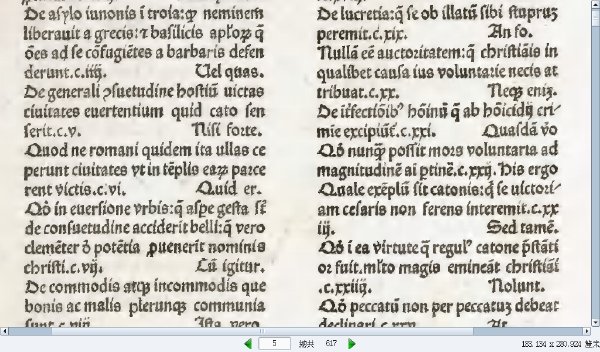 De asylo iunonis ĩ troia: qꝫ neminem
liberauit a grecis: ⁊ basilicis apl'oꝝ q̃
oẽs ad se cõfugiẽtes a barbaris defen
derunt.c.iiij. Uel quas.
De generali ꝯsuetudine hostiũ uictas
ciuitates euertentium quid cato sen
serit.c.v. Nisi forte.
Quod ne romani quidem ita ullas ce
perunt ciuitates vt in tẽplis eaꝝ parce
rent victis.c.vi. Quid er.
Qõ in euersione vrbis: q̃ aspe gesta sũt
de consuetudine acciderit belli: q̃ vero
clemẽter õ potẽtia ꝓuenerit nominis
christi.c.vij. Cũ igitur.
De commodis atqꝫ incommodis que
bonis ac malis plerunqꝫ communia
sunt.c.viij. Ista vero.
De lucretia: q̃ se ob illatũ sibi stupruꝫ
peremit.c.xix. An fo.
Nullã eẽ auctoritatem: q̃ christiãis in
qualibet causa ius voluntarie necis at
tribuat.c.xx. Neqꝫ eniꝫ.
De ĩtfectiõibꝰ hoĩnũ q̃ ab hõicidij cri
mie excipiũt̃.c.xxi. Quasdã vo
Qõ nunqꝫ possit mors voluntaria ad
magnitudinẽ ai ptinẽ.c.xxij. His ergo
Quale exẽplũ sit catonis: q̃ se uictori
am cesaris non ferens interemit.c.xx
iij. Sed tamẽ.
Qõ ĩ ea virtute q̃ regulꝰ catone p̃stãti
or fuit. ml'to magis emineãt christiãi
.c.xxiiij. Nolunt.
Qõ peccatũ non per peccatuꝫ debeat
declinari.c.xxv. At
5
总共
617
183.134 x 280.924 毫米